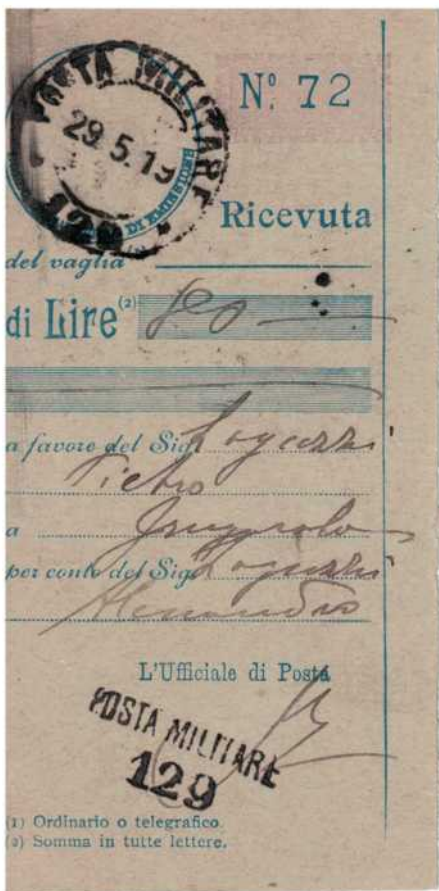 POSTA MILITARE
29.5.19
129
DI EMISSIONE
Nº 72
Ricevuta
del vaglia (1)
di Lire (2)
a favore del Sig.
Pietro
a
per conto del Sig.
Alessandro
L'Ufficiale di Posta
POSTA MILITARE
129
(1) Ordinario o telegrafico.
(2) Somma in tutte lettere.